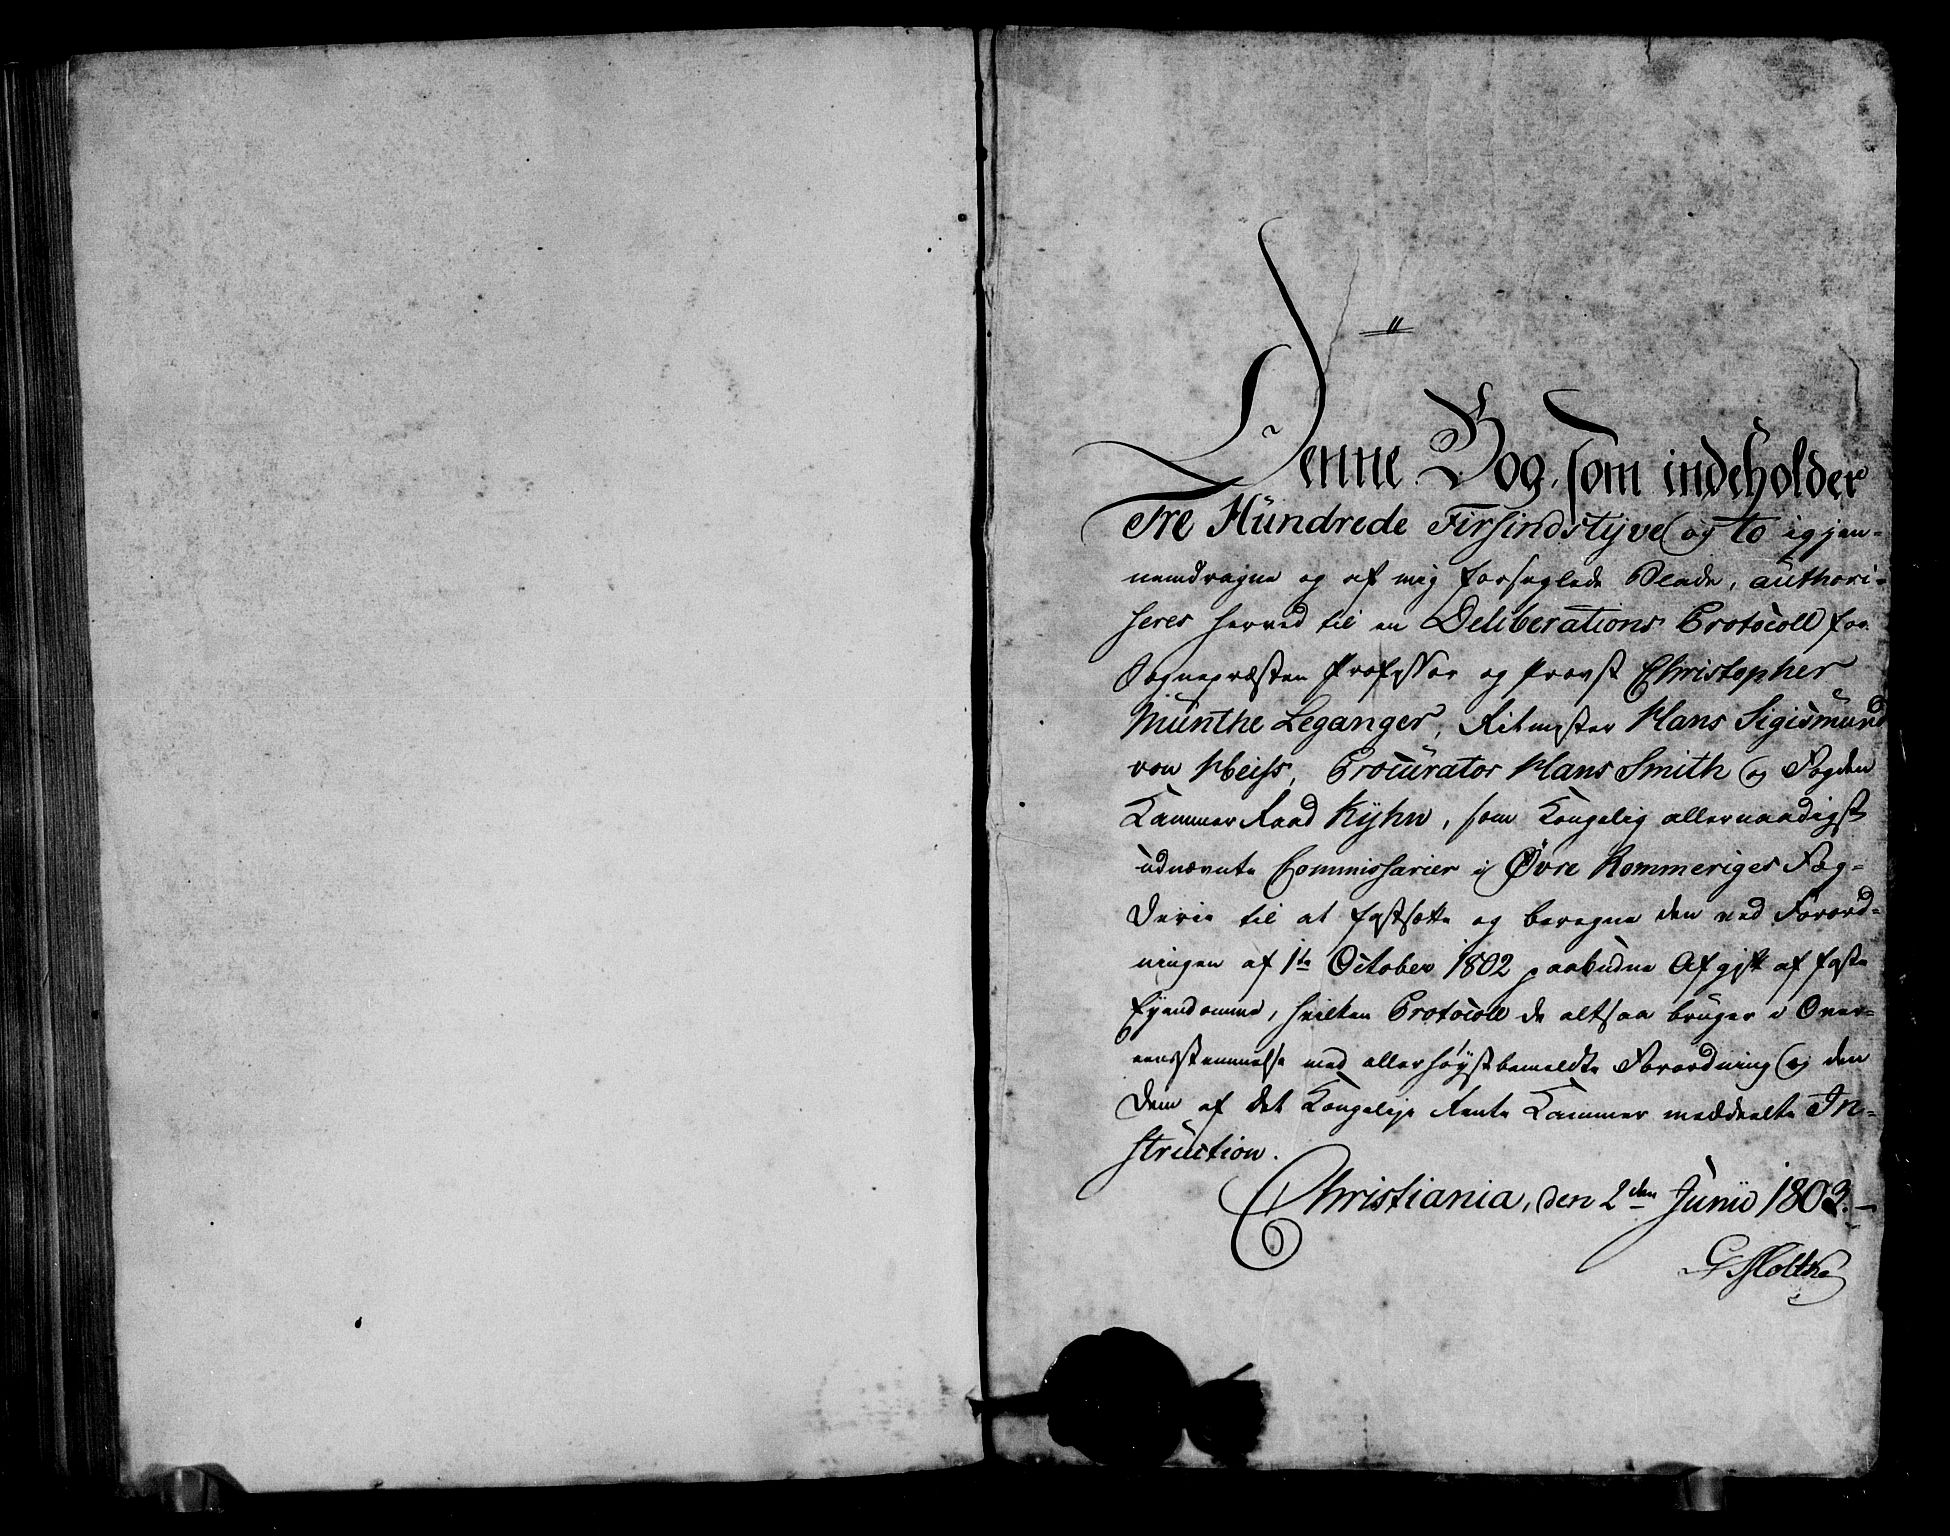 Denne Bog, som indeholder
Tre Hundrede Firsindstyve og to igjen-
nemdragne og af mig forseglede Blade, authori-
seres herved til en Deliberations Protocoll for
Sognepræsten Professor og Provst Christopher
Munthe Leganger, Ritmester Hans Sigismund
von Heiss, Procurator Hans Smith og Fogden
Kammer Raad Kyhn, som Kongelig allernaadigst
udnævnte Commissarier i Øvre Rommeriges Fog-
derie til at fastsætte og beregne den ved Forord-
ningen af 1te October 1802 paabudne Afgift af faste
Eyendomme, hvilken Protocoll de altsaa bruger i Over-
eensstemmelse med allerhøystbemeldte Forordning og den
dem af det Kongelige Rente Kammer meddeelte In-
struction.
Christiania, den 2den Junii 1803.-
G Moltke